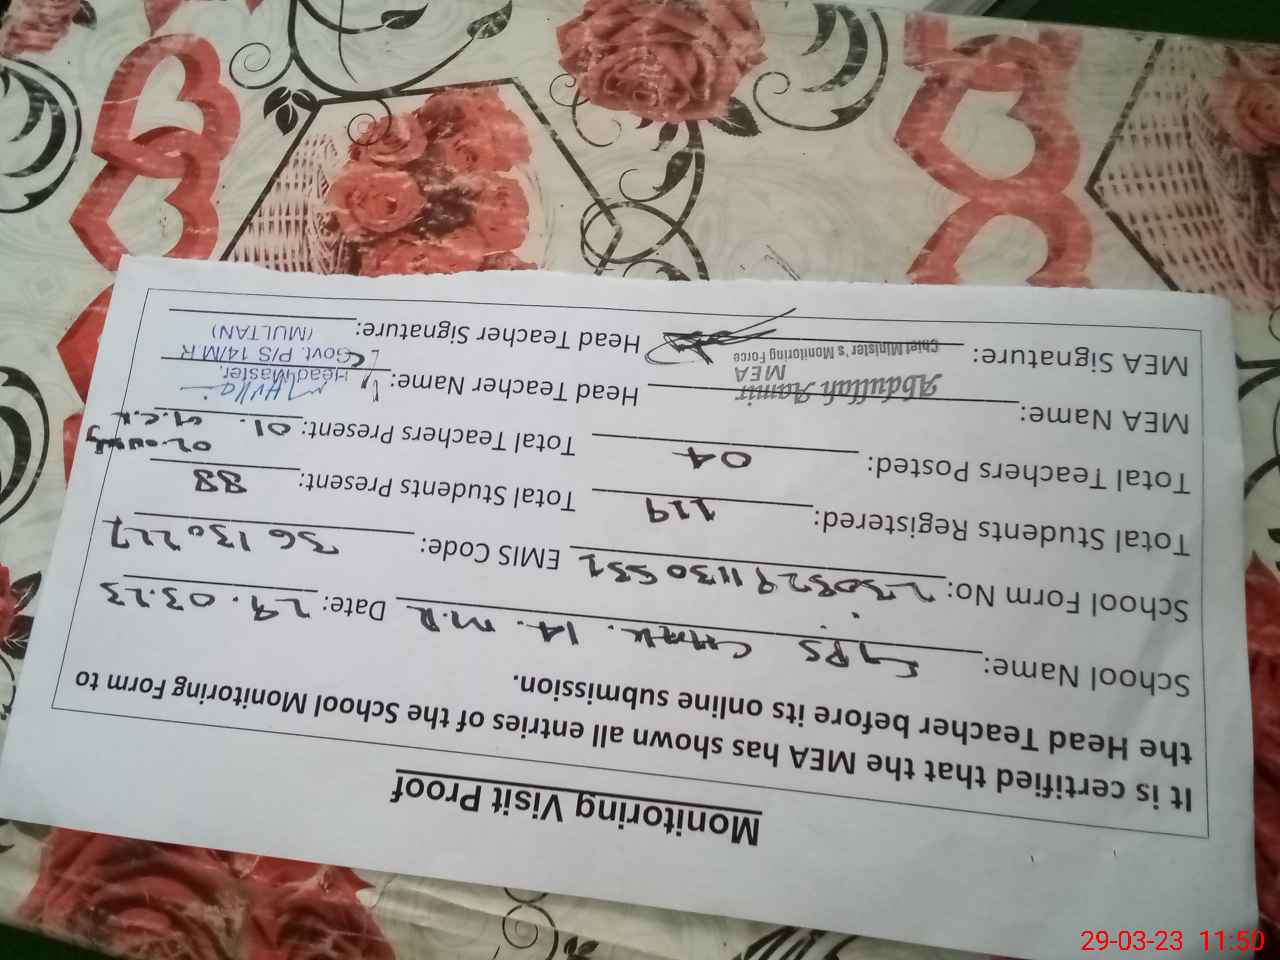 Monitoring Visit Proof
It is certified that the MEA has shown all entries of the School Monitoring Form to
the Head Teacher before its online submission.
School Name: GPS CHAK. 14. M.R Date: 29.03.23
School Form No: 2303291130551 EMIS Code: 36130227
Total Students Registered: 119 Total Students Present: 88
Total Teachers Posted: 04 Total Teachers Present: 01.
MEA Name: Abdullah Aamir Head Teacher Name:
MEA
Chief Minister's Monitoring Force
MEA Signature: Head Teacher Signature:
Head Master,
Govt. P/S 14/M.R
(MULTAN)
29-03-23 11:50